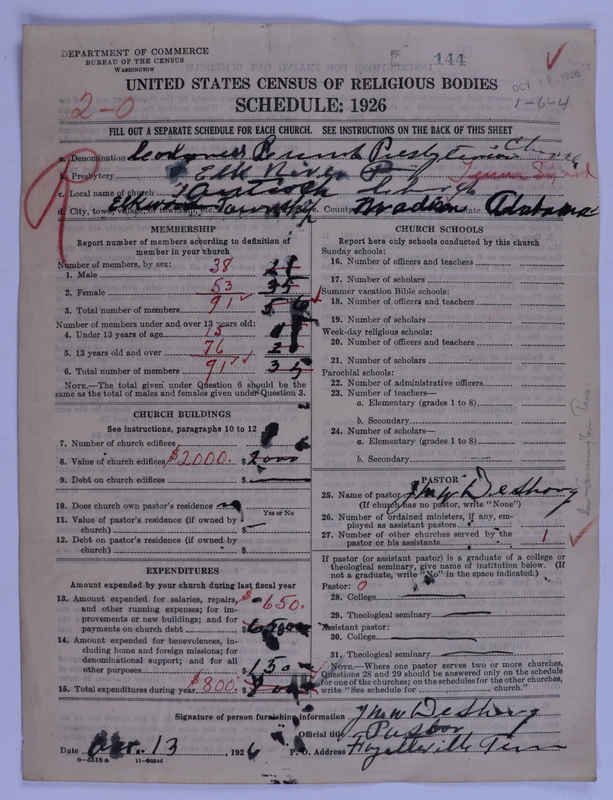 DEPARTMENT OF COMMERCE
BUREAU OF THE CENSUS
WASHINGTON
144
OCT 15 1926
1-6-4
UNITED STATES CENSUS OF RELIGIOUS BODIES
SCHEDULE: 1926
2-0
FILL OUT A SEPARATE SCHEDULE FOR EACH CHURCH. SEE INSTRUCTIONS ON THE BACK OF THIS SHEET
a. Denomination Presbyterian Church
b. Presbytery Elk River P Tenn Synod
c. Local name of church Antioch Church
d. City, town, village, or township, etc. Elkwood Township e. County Madison State Alabama
MEMBERSHIP
Report number of members according to definition of member in your church
Number of members, by sex:
1. Male 38 21
2. Female 53 35
3. Total number of members 91 56
Number of members under and over 13 years old:
4. Under 13 years of age 15
5. 13 years old and over 76
6. Total number of members 91 35
NOTE.—The total given under Question 6 should be the same as the total of males and females given under Question 3.
CHURCH BUILDINGS
See instructions, paragraphs 10 to 12
7. Number of church edifices
8. Value of church edifices $2000. $2000
9. Debt on church edifices $
10. Does church own pastor's residence no
Yes or No
11. Value of pastor's residence (if owned by church) $
12. Debt on pastor's residence (if owned by church) $
EXPENDITURES
Amount expended by your church during last fiscal year
13. Amount expended for salaries, repairs, and other running expenses; for improvements or new buildings; and for payments on church debt $650.
14. Amount expended for benevolences, including home and foreign missions; for denominational support; and for all other purposes 150
15. Total expenditures during year $800.
CHURCH SCHOOLS
Report here only schools conducted by this church
Sunday schools:
16. Number of officers and teachers
17. Number of scholars
Summer vacation Bible schools:
18. Number of officers and teachers
19. Number of scholars
Week-day religious schools:
20. Number of officers and teachers
21. Number of scholars
Parochial schools:
22. Number of administrative officers
23. Number of teachers—
a. Elementary (grades 1 to 8)
b. Secondary
24. Number of scholars—
a. Elementary (grades 1 to 8)
b. Secondary
PASTOR
25. Name of pastor J M W DeShong
(If church has no pastor, write "None")
26. Number of ordained ministers, if any, employed as assistant pastors
27. Number of other churches served by the pastor or his assistants 1
If pastor (or assistant pastor) is a graduate of a college or theological seminary, give name of institution below. (If not a graduate, write "No" in the space indicated.)
Pastor: 0
28. College
29. Theological seminary
Assistant pastor:
30. College
31. Theological seminary
NOTE.—Where one pastor serves two or more churches, Questions 28 and 29 should be answered only on the schedule for one of the churches; on the schedules for the other churches, write "See schedule for church."
Signature of person furnishing information J M W DeShong
Official title Pastor
Date Oct. 13, 1926 P. O. Address Fayetteville Tenn
8-5318 a